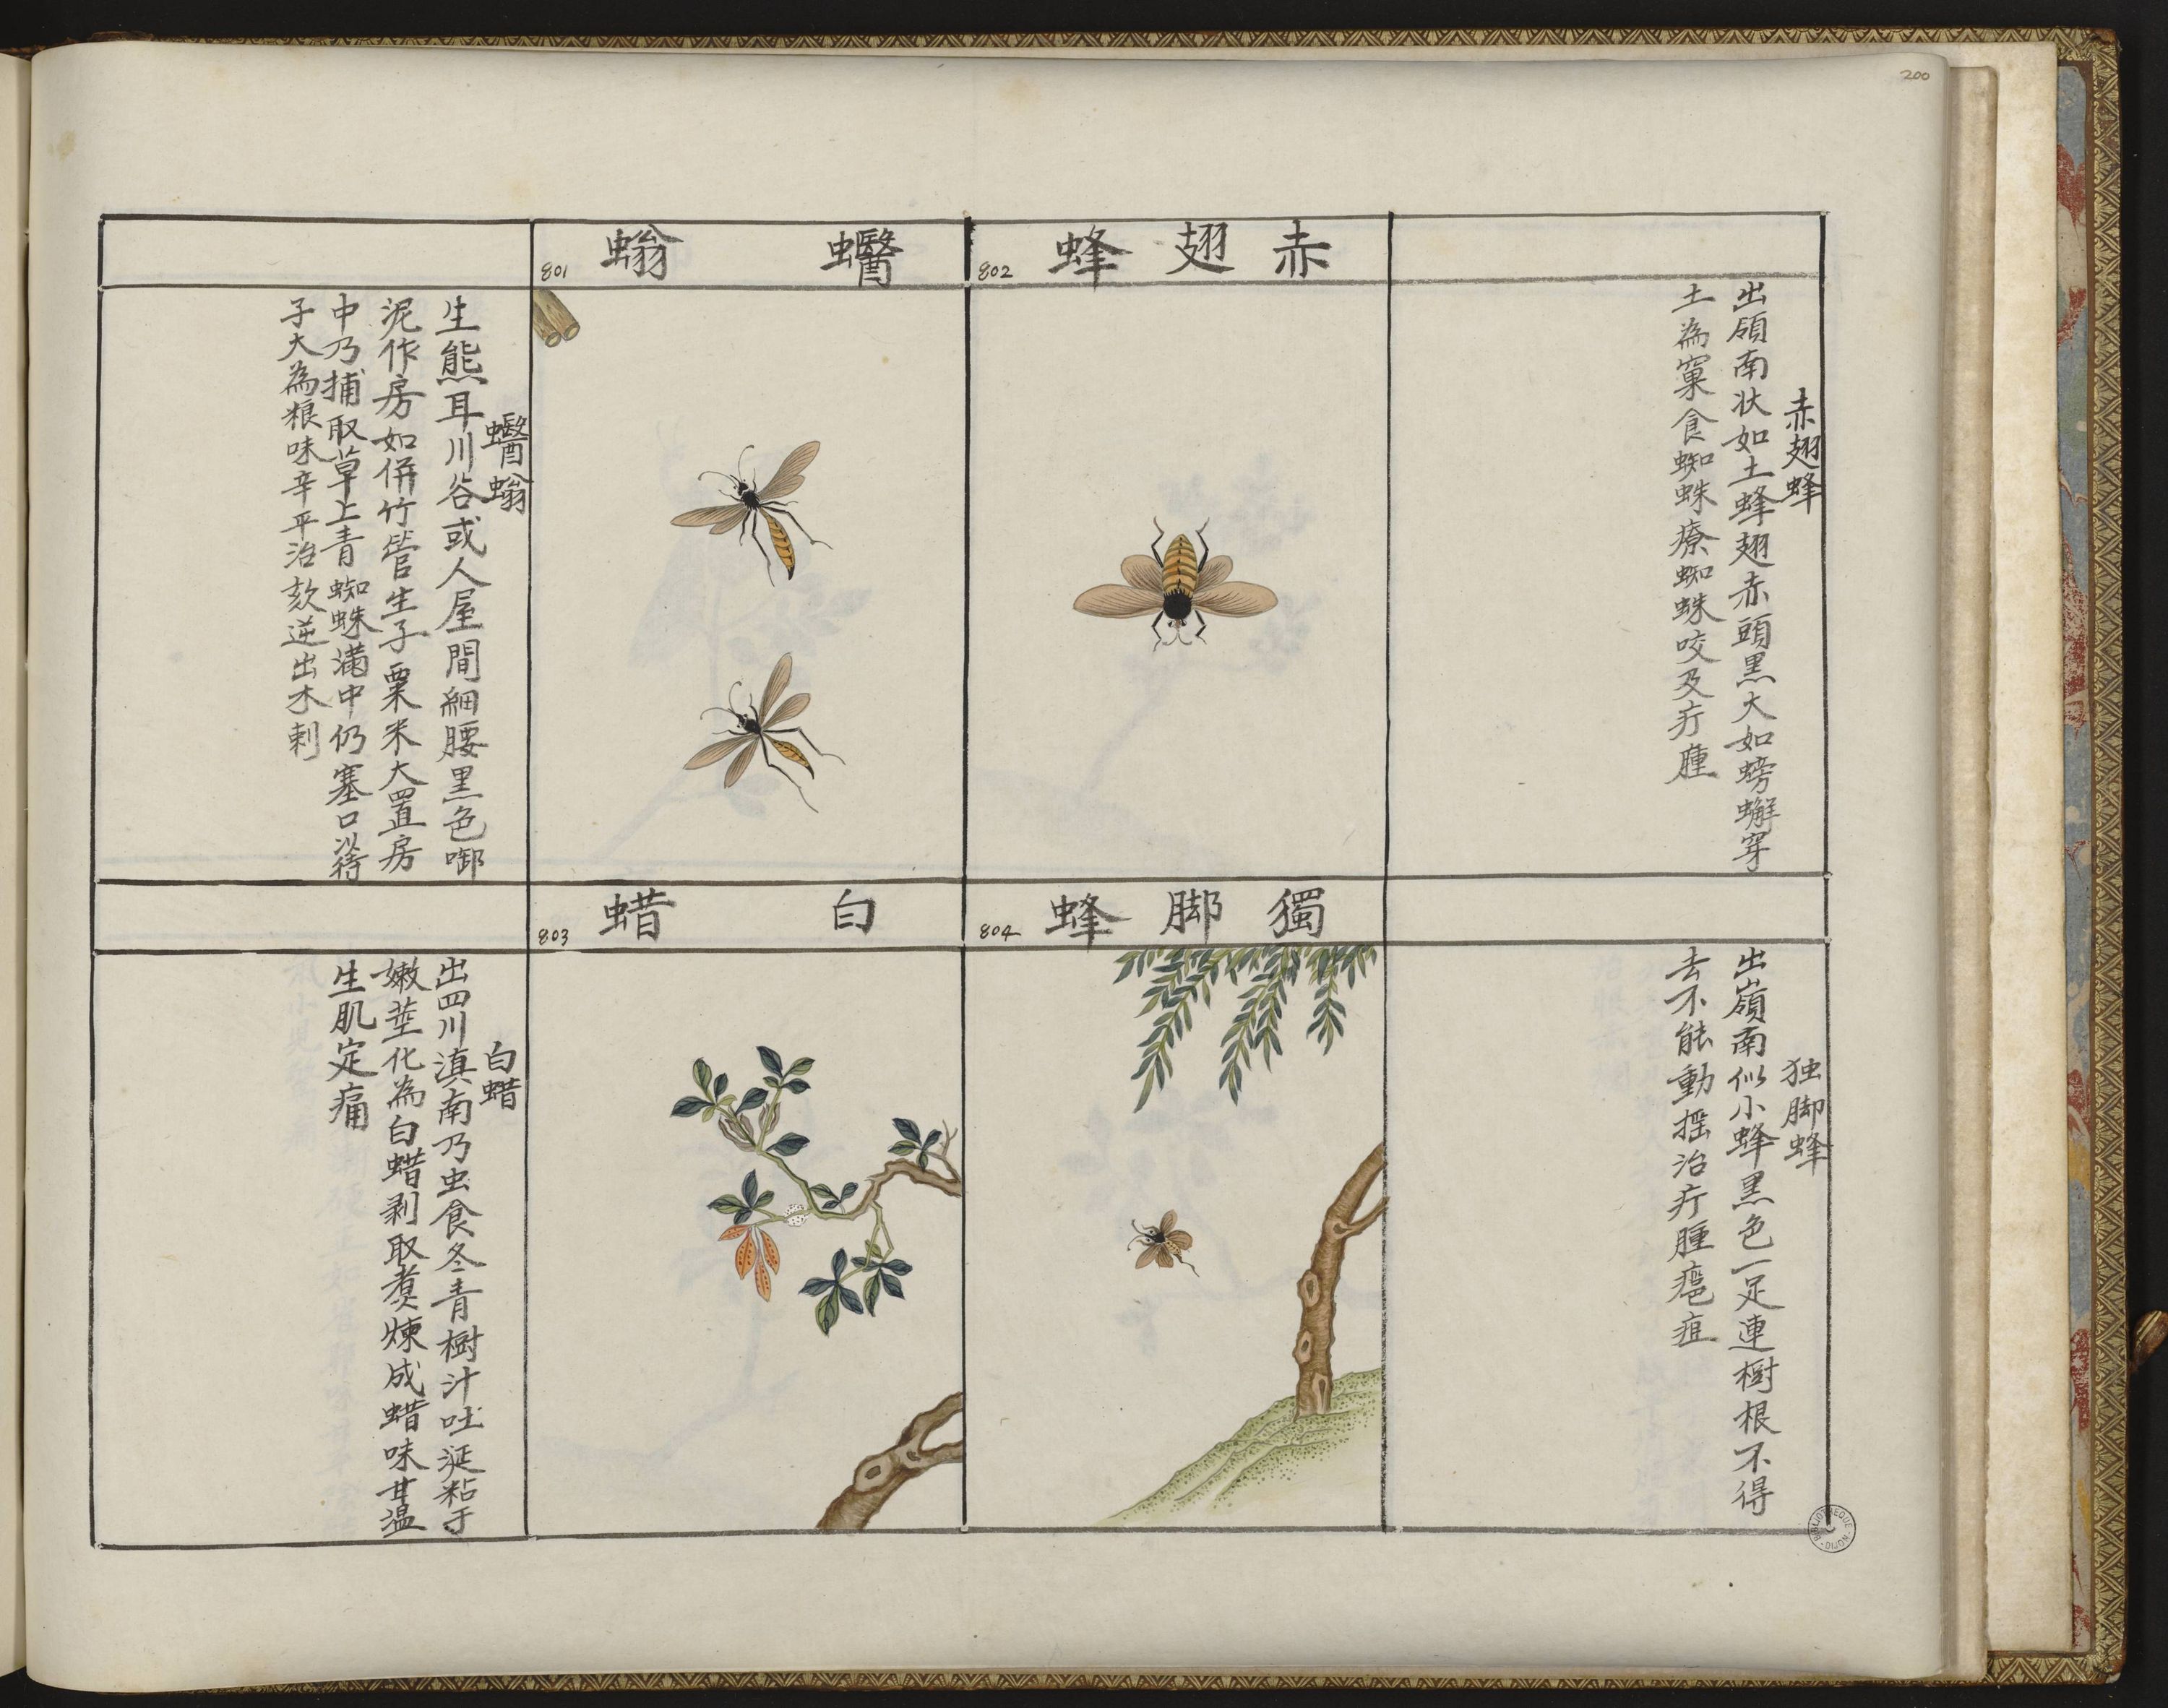 200
赤翅蜂
802
赤翅蜂
出領南状如土蜂翅赤頭黒大如螃蠏穿
土為窠食蜘蛛療蜘蛛咬及疔腫
蠮螉
801
蠮螉
生熊耳川谷或人屋間細腰黒色啣
泥作房如併竹管生子粟米大置房
中乃捕取草上青蜘蛛满中仍塞口以待
子大為粮味辛平治欬逆出木刺
獨脚蜂
804
独脚蜂
出嶺南似小蜂黒色一足連樹根不得
去不能動摇治疔腫瘡疽
白蜡
803
白蜡
出四川滇南乃虫食冬青樹汁吐涎粘于
嫩莖化為白蜡剥取煮煉成蜡味甘温
生肌定痛
BIBLIOTHEQUE